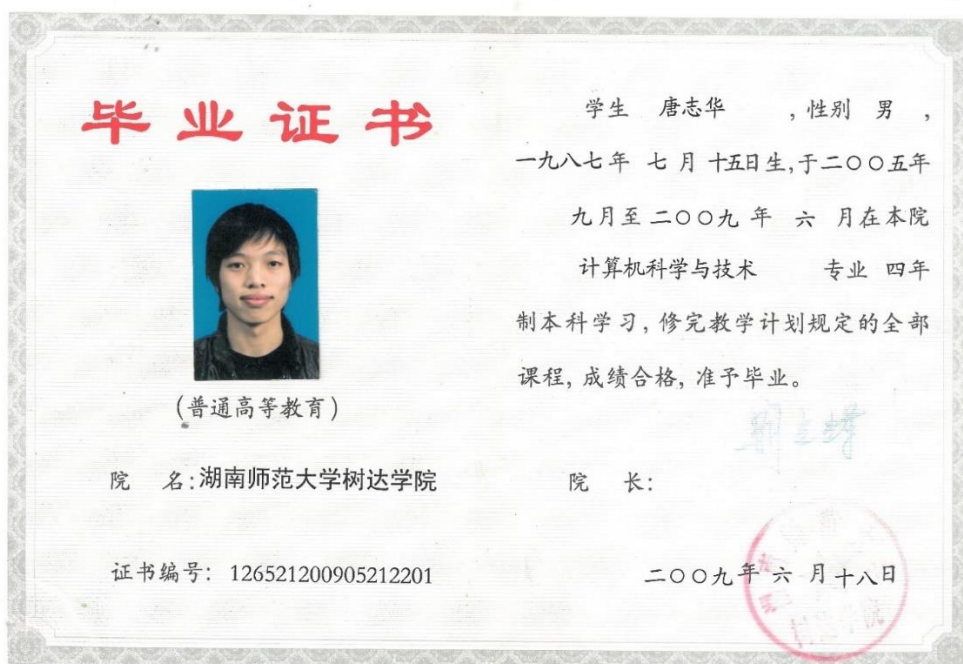 毕业证书
(普通高等教育)
院 名:湖南师范大学树达学院
证书编号: 126521200905212201
学生 唐志华 ,性别 男 ,
一九八七年 七 月 十五日生,于二〇〇五年
九月至二〇〇九 年 六 月在本院
计算机科学与技术 专业 四年
制本科学习, 修完教学计划规定的全部
课程, 成绩合格, 准予毕业。
院 长:
二〇〇九年 六 月十八日